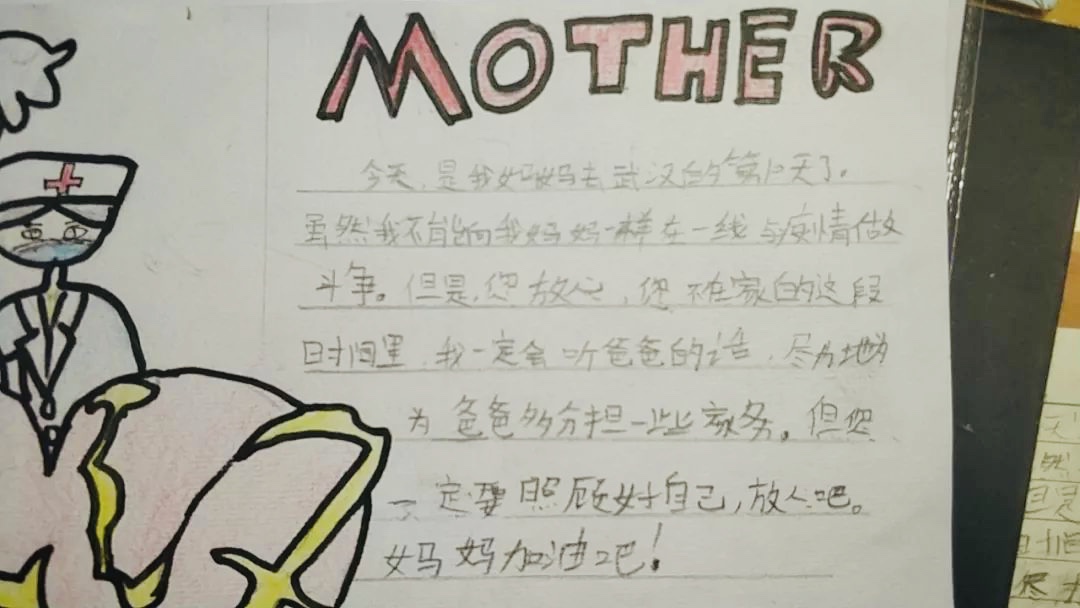 MOTHER
今天,是我妈妈去武汉的第12天了。
虽然我不能向我妈妈一样在一线与疫情做
斗争。但是,您放心,您不在家的这段
时间里,我一定会听爸爸的话,尽力地为
为爸爸多分担一些家务。但您
一定要照顾好自己,放心吧。
妈妈加油吧!